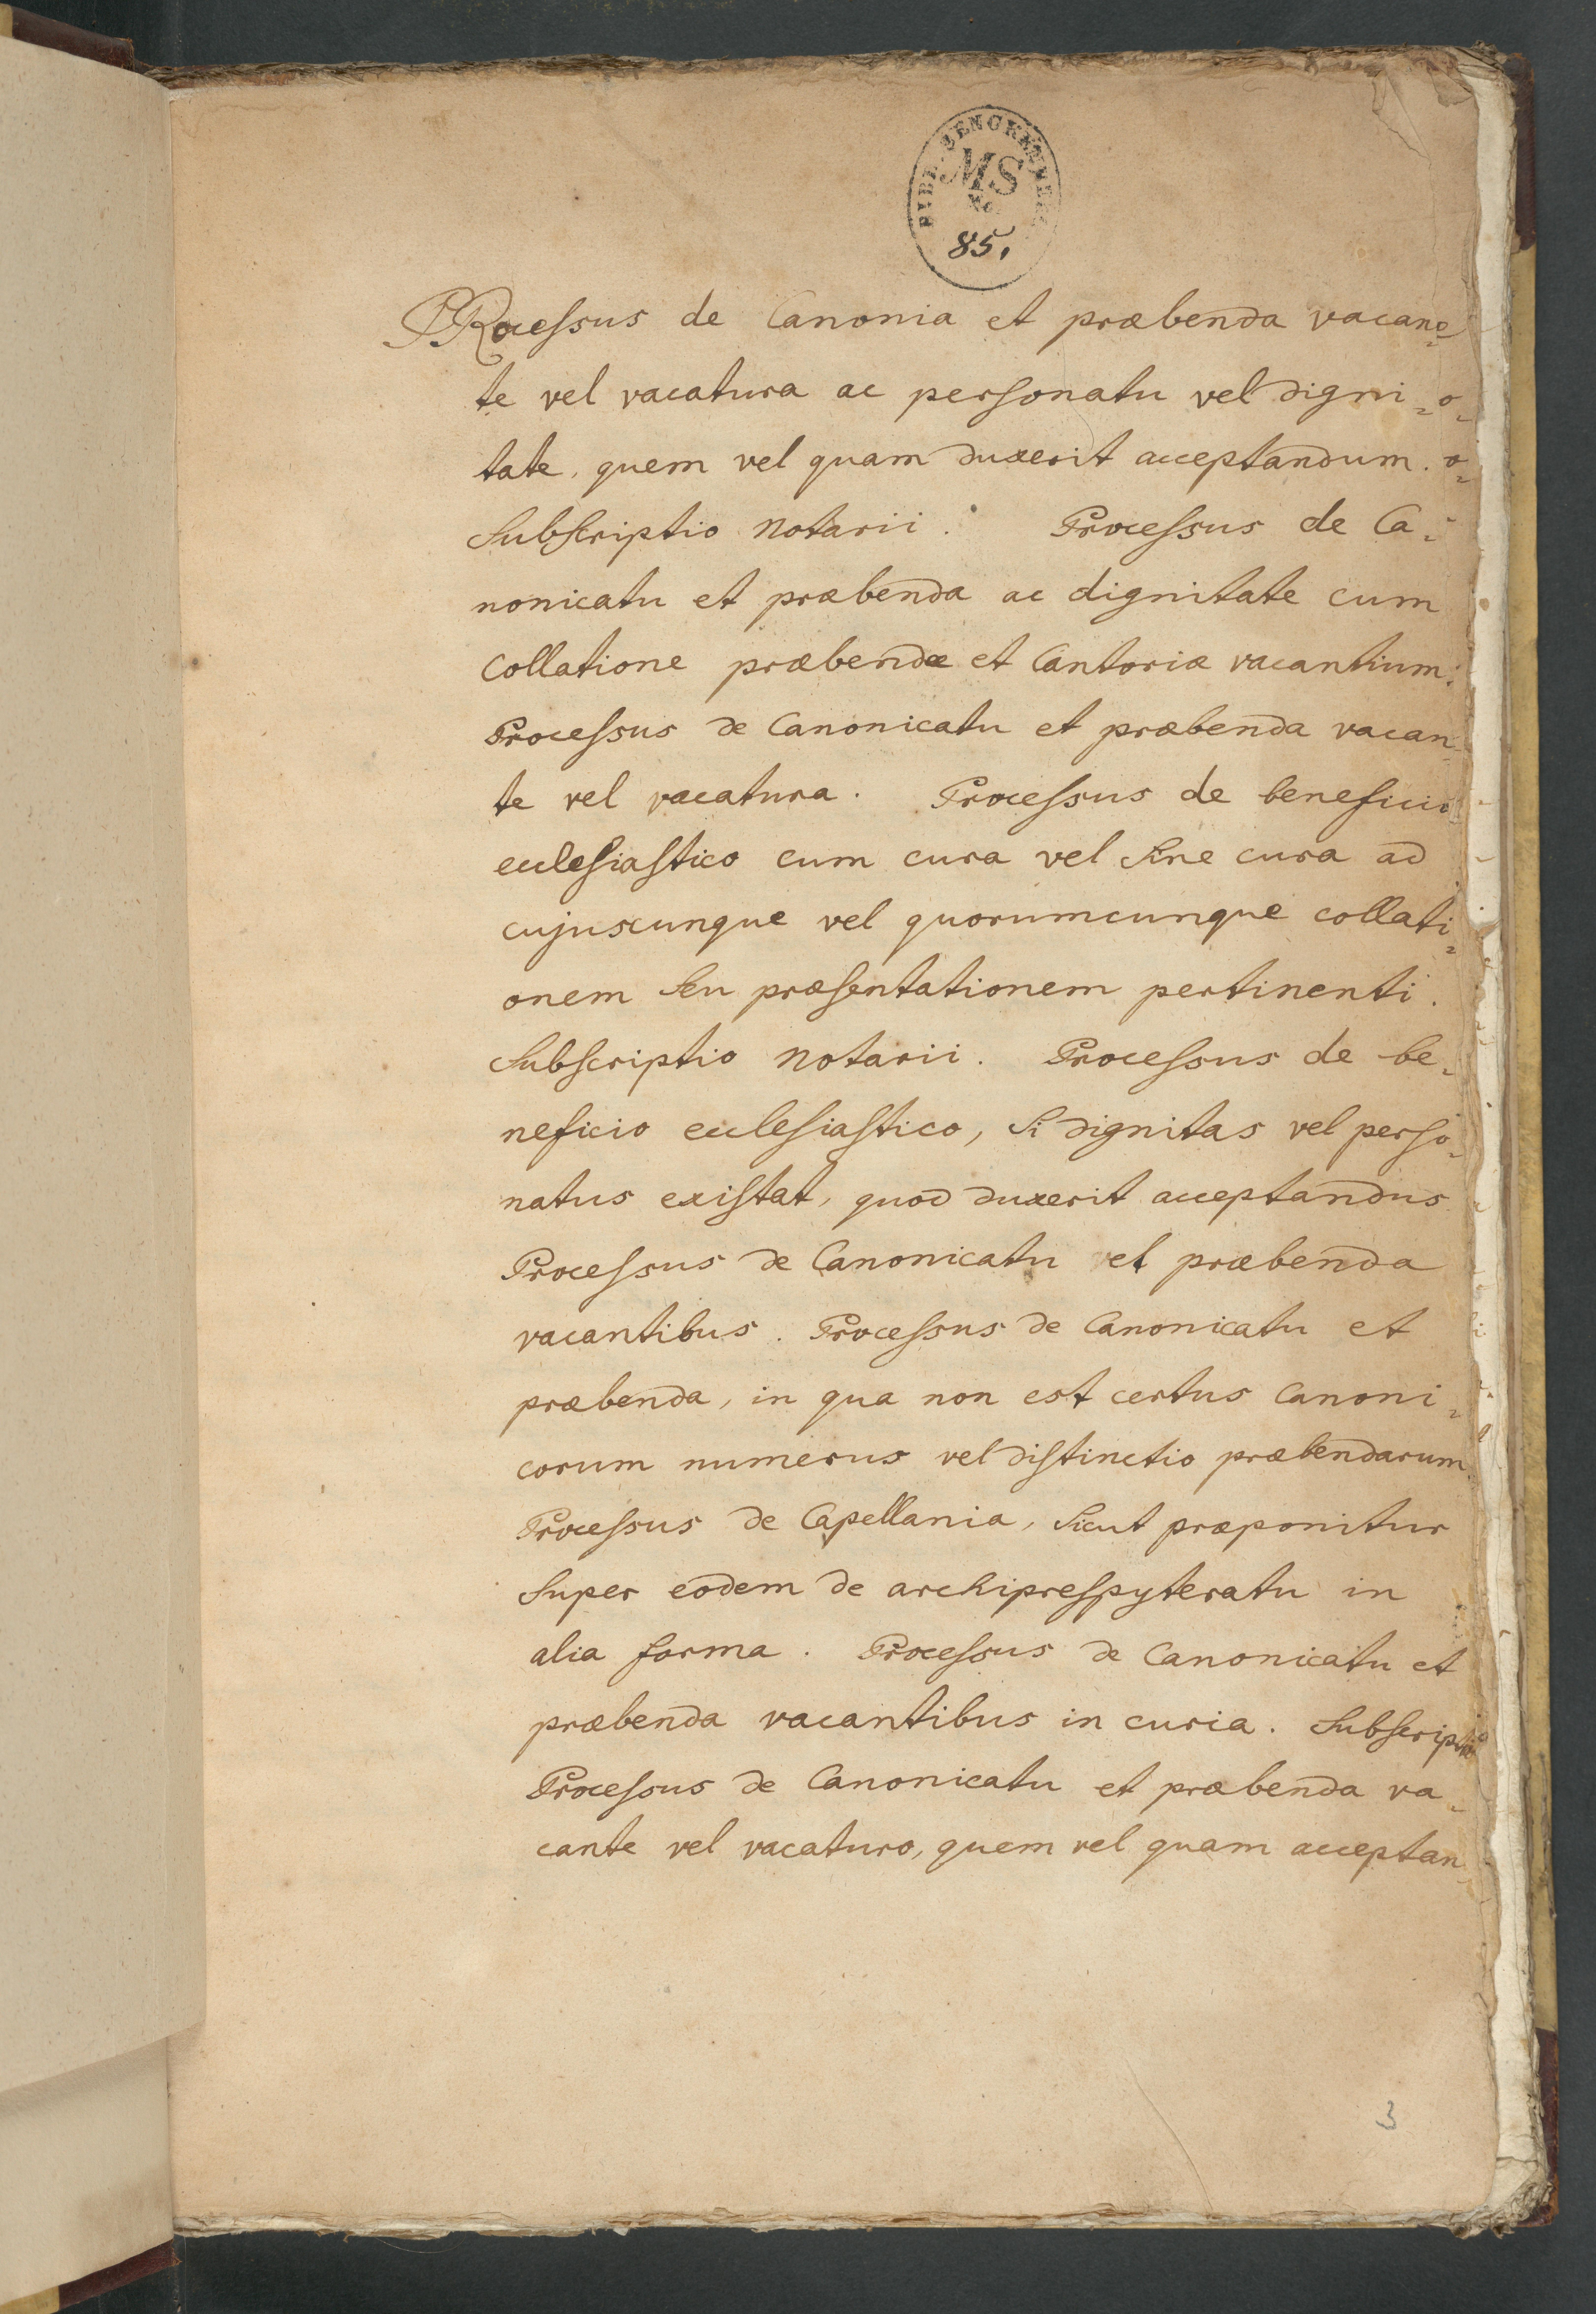 MS
No
85.
PRocessus de Canonia et præbenda vacan=
te vel vacatura ac personatu vel digni=
tate, quem vel quam duxerit acceptandum.
Subscriptio Notarii. Processus de Ca=
nonicatu et præbenda ac dignitate cum
collatione præbendæ et Cantoriæ vacantium.
Processus de Canonicatu et præbenda vacan=
te vel vacatura. Processus de beneficio
ecclesiastico cum cura vel sine cura ad
cujuscunque vel quorumcunque collati=
onem seu præsentationem pertinenti.
Subscriptio Notarii. Processus de be=
neficio ecclesiastico, si dignitas vel perso=
natus existat, quod duxerit acceptandus
Processus de Canonicatu vel præbenda
vacantibus. Processus de Canonicatu et
præbenda, in qua non est certus Canoni=
corum numerus vel distinctio præbendarum.
Processus de Capellania, sicut præponitur
super eodem de archiprespyteratu in
alia forma. Processus de Canonicatu et
præbenda vacantibus in curia. Subscriptio
Processus de Canonicatu et præbenda va=
cante vel vacaturo, quem vel quam acceptan=
3